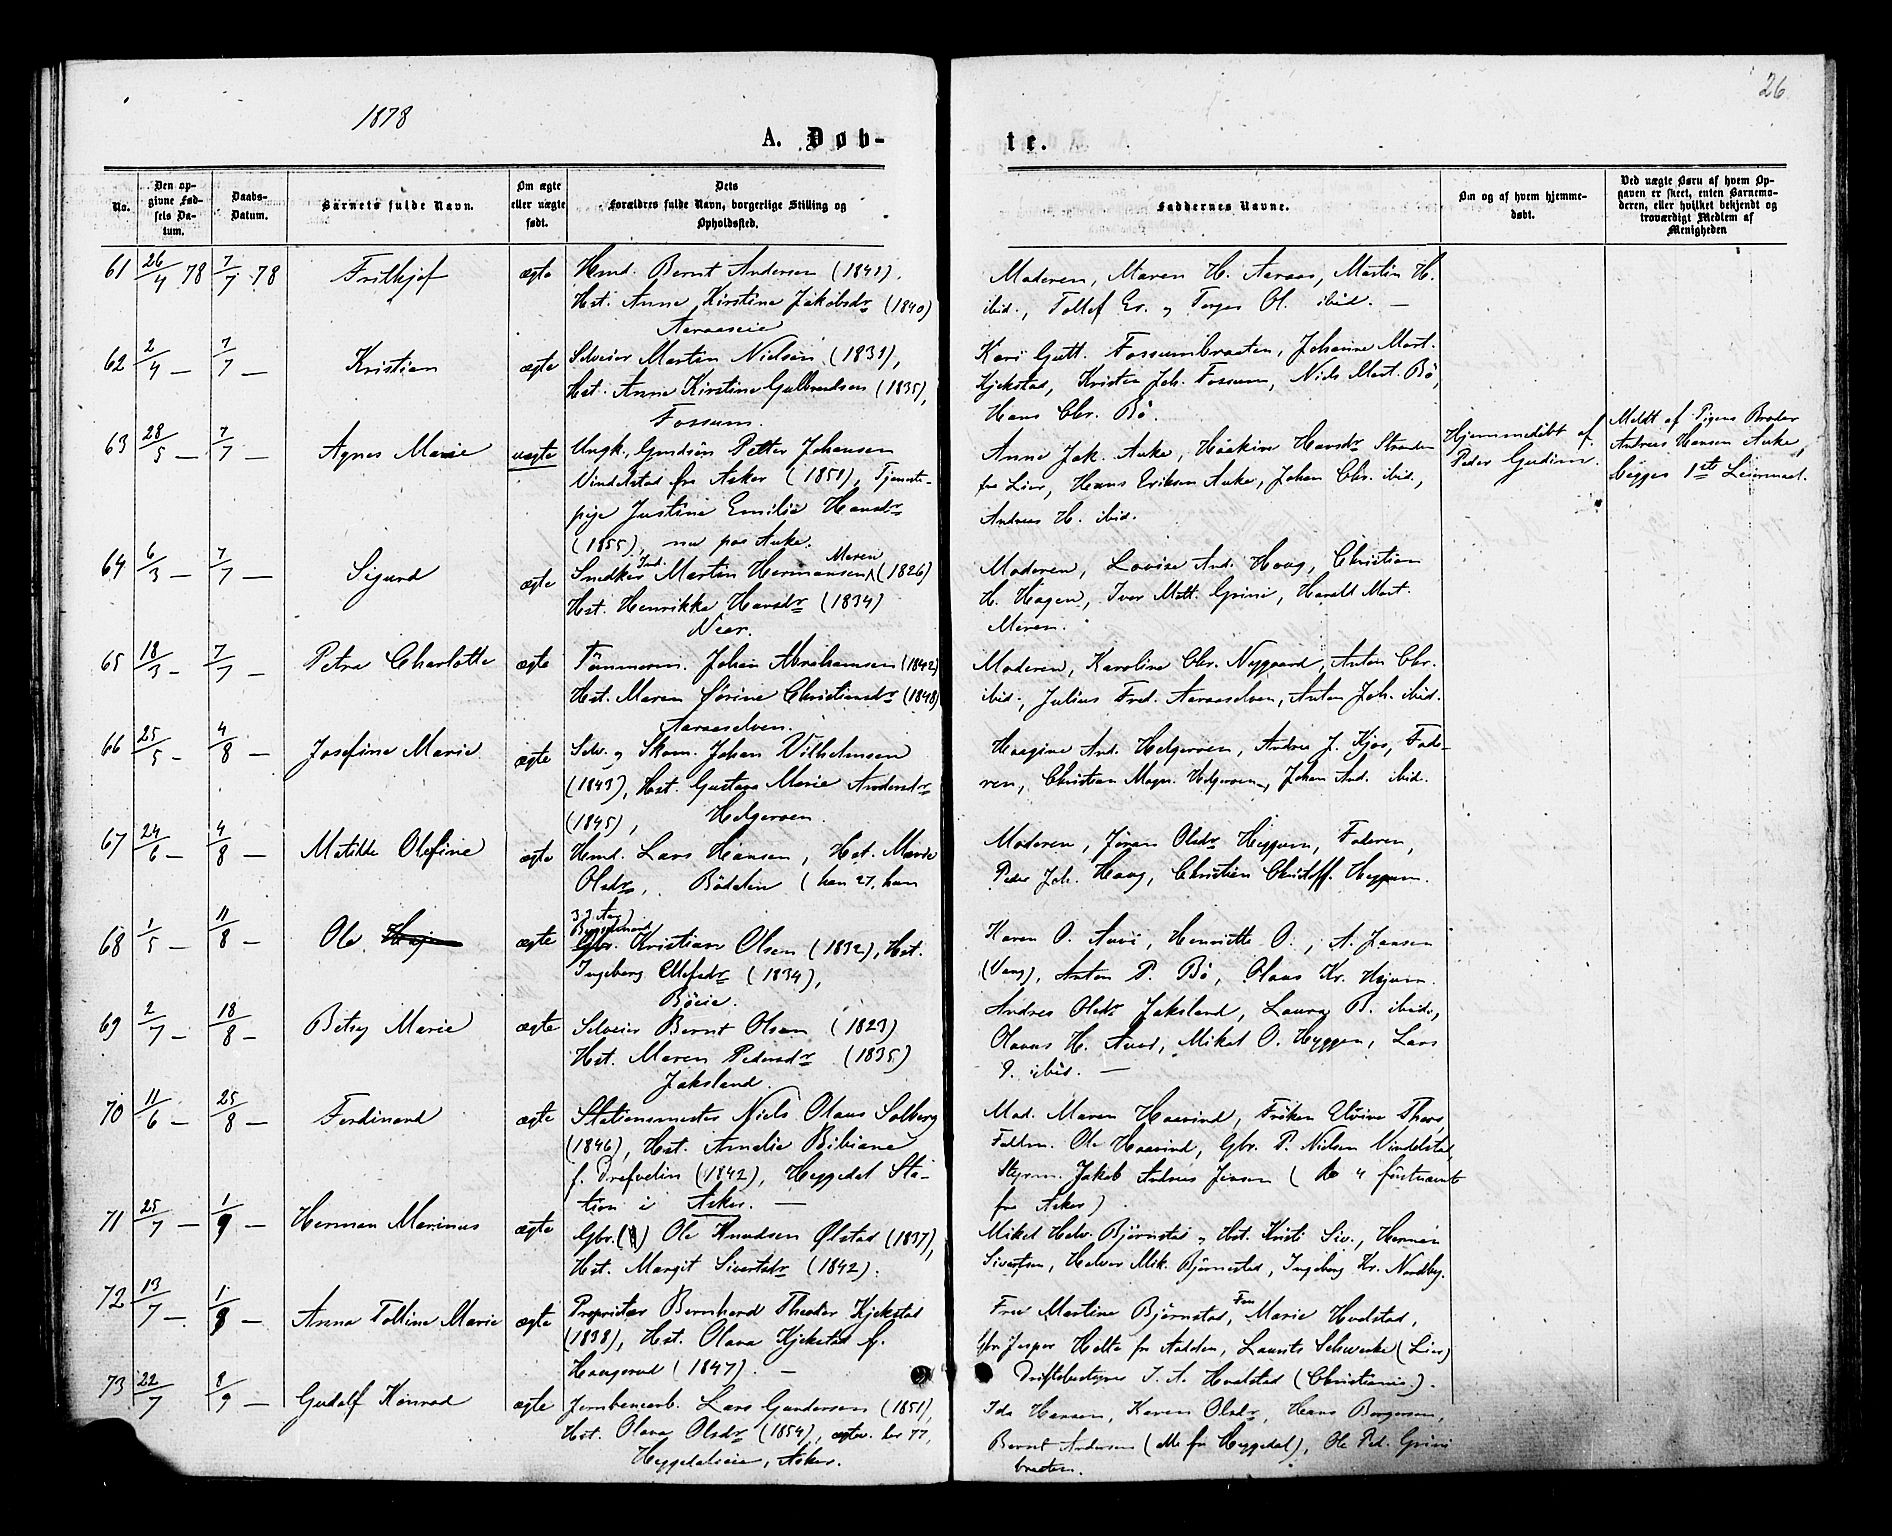 1878
26
A. Døb-
te.
No.
Den op-
givne Fød-
sels Da-
tum.
Daabs-
Datum.
Barnets fulde Navn.
Om ægte
eller uægte
født.
Dets
Forældres fulde Navn, borgerlige Stilling og
Opholdssted.
Faddernes Navne.
Om og af hvem hjemme-
døbt.
Ved uægte Børn af hvem Op-
gaven er skeet, enten Barnemo-
deren, eller hvilket bekjendt og
troværdigt Medlem af
Menigheden
61 26/4 78 7/7 78 Frithjof ægte Hmd. Bernt Andersen (1841),
Hst. Anne Kirstine Jakobsdr (1840)
Aaraaseie
Moderen, Maren H. Aaraas, Martin H.
ibid., Tollef Er. og Torger Ol. ibid. —
62 2/4 — 7/7 — Kristian ægte Selveier Martin Nielsen (1831),
Hst. Anne Kirstine Gulbrandsen (1835),
Fossum.
Kari Gutt. Fossumbraaten, Johanne Mart.
Kjekstad, Kristen Joh. Fossum, Niels Mart. Bö,
Hans Chr. Bö.
63 28/5 — 7/7 — Agnes Marie uægte Ungk., Gmdsön Petter Johansen
Vindelstad fra Asker (1851), Tjeneste-
pige Justine Emilie Hansdr
(1855), nu paa Auke.
Anne Jak. Auke, Haakine Hansdr Stranden
fra Lier, Hans Eriksen Auke, Johan Chr. ibid.,
Andreas H. ibid.
Hjemmedöbt af
Peder Gudim.
Meldt af Pigens Broder
Andreas Hansen Auke,
begges 1ste Leiermaal.
64 6/3 — 7/7 — Sigurd ægte Snedker Ind. Martin Hermansen Meren (1826)
Hst. Henrikke Hansdr (1834)
Nær.
Moderen, Lovise And. Haug, Christian
H. Hagen, Iver Matt. Grini, Harald Mart.
Meren.
65 18/3 — 7/7 — Petra Charlotte ægte Tömmerm. Johan Abrahamsen (1842)
Hst. Maren Sörine Christiansdr (1848)
Aaraaselven.
Moderen, Karoline Chr. Nygaard, Anton Chr.
ibid., Julius Fred. Aaraaselven, Anton Joh. ibid.
66 25/5 — 4/8 — Josefine Marie ægte Selv. og Skom. Johan Vilhelmsen
(1843), Hst. Gustava Marie Andersdr
(1845), Helgeroen.
Haagine And. Helgeroen, Andrea J. Kjos, Fade-
ren, Christian Magn. Helgeroen, Johan And. ibid.
67 24/6 — 4/8 — Matilde Olefine ægte Hmd. Lars Hansen, Hst. Marie
Olsdr, Böddelen (hun 27, han
33 Aar)
Moderen, Jöran Olsdr Heggum, Faderen,
Peder Joh. Haug, Christian Christoff. Heggum.
68 1/5 — 11/8 — Ole ægte Kristian Olsen (1832), Hst.
Ingeborg Ellefsdr (1834),
Böeie.
Karen O. Auvi, Henriette O., A. Jansen
(Vang), Anton P. Bö, Olaus Kr. Hejum.
69 2/7 — 18/8 — Betsy Marie ægte Selveier Bernt Olsen (1823)
Hst. Maren Pedersdr (1835)
Jaksland.
Andrea Olsdr Jaksland, Laura B. ibid.,
Olavus H. Auvi, Mikal O. Hyggen, Lars
P. ibid. —
70 11/6 — 25/8 — Ferdinand ægte Stationsmester Niels Olaus Solberg
(1846), Hst. Amalie Bibiane
f. Drefvelin (1842), Heggedal Sta-
tion i Asker. —
Mad. Maren Haavind, Fröken Elvine Thors,
Fuldm. Ole Haavind, Gbr. P. Nielsen Vindelstad,
Styrm. Jakob Andreas Jensen (de 4 förstnævnte
fra Asker)
71 25/7 — 1/9 — Herman Marinus ægte Gbr. Ole Knudsen Ølstad (1837),
Hst. Margit Sivertsdr (1842).
Mikal Halv. Björnstad og Hst. Kristi Siv., Herman
Sivertsen, Halvor Mik. Björnestad, Ingeborg Kr. Nordby.
72 13/7 — 1/9 — Anna Tolline Marie ægte Proprietær Bernhard Theodor Kjekstad
(1838), Hst. Olava Kjekstad f.
Haugerud (1847). —
Fru Martine Björnstad, Fru Marie Hvalstad,
Gbr Jesper Holte fra Aadden, Laurits Schwencke (Lier)
Driftsbestyrer I. A. Hvalstad (Christiania).
73 22/7 8/9 — Gudolf Konrad ægte Jernbanearb. Lars Gundersen (1851),
Hst. Olava Olsdr (1854), ægtev. her 77,
Heggedalseie, Asker.
Ida Hansen, Karen Olsdr, Hans Borgersen,
Bernt Andersen (alle fra Heggedal), Ole Ped. Grini
braaten.